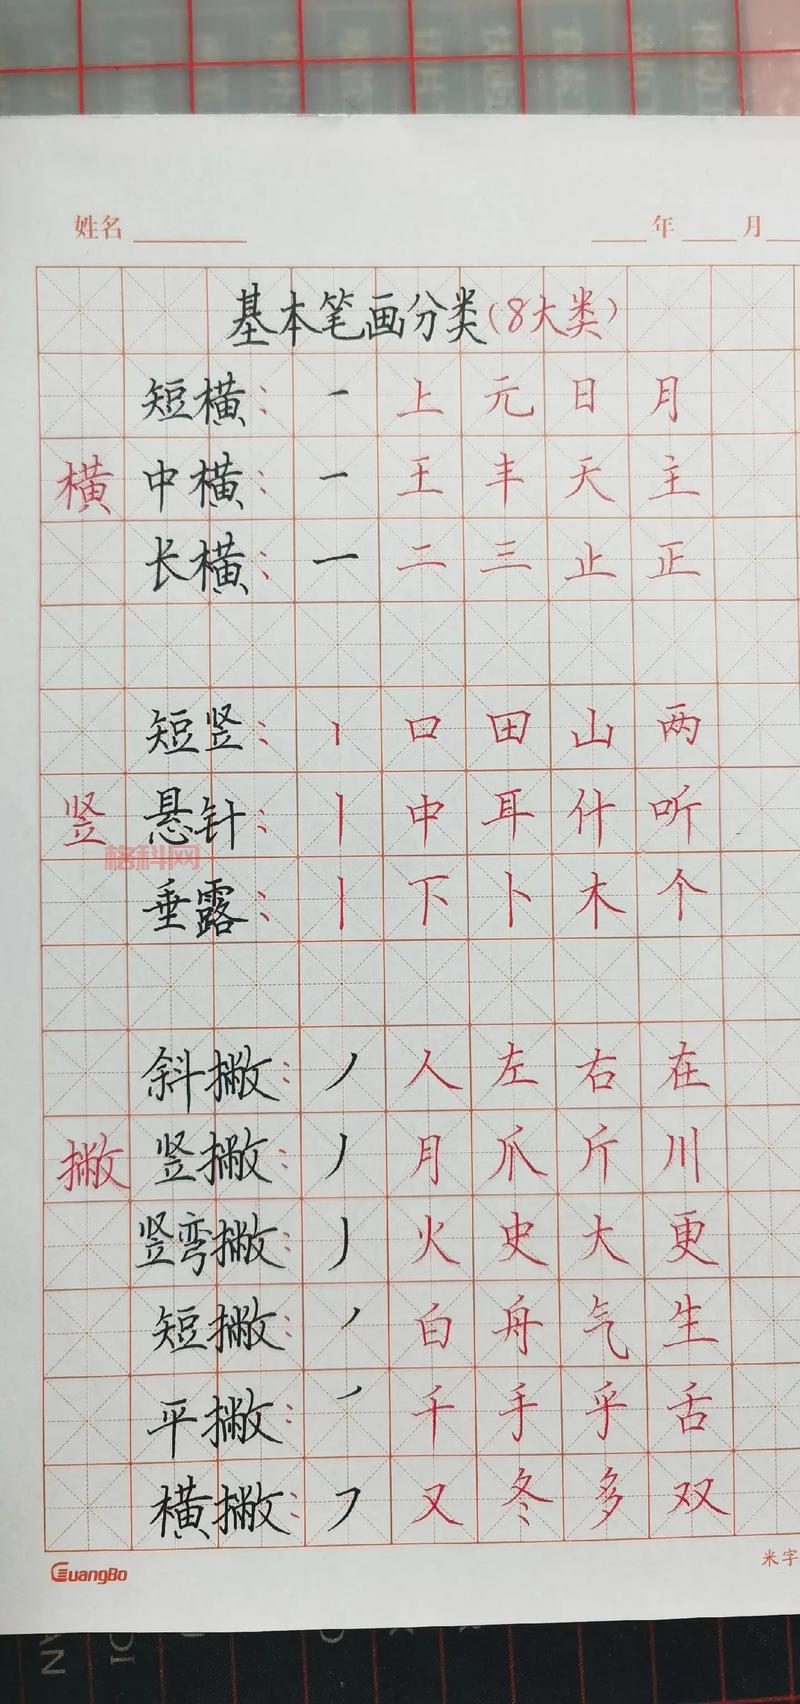 姓名 年 月
基本笔画分类(8大类)
短横: 一 上 元 日 月
横 中横: 一 王 丰 天 主
长横: 一 二 三 止 正
短竖: 丨 口 田 山 两
竖 悬针: 丨 中 耳 什 听
格科网
垂露: 丨 下 卜 木 个
斜撇: 丿 人 左 右 在
撇 竖撇: 丿 月 爪 斤 川
竖弯撇: 丿 火 史 大 更
短撇: 丿 白 舟 气 生
平撇: 丿 千 手 乎 舌
横撇: フ 又 冬 多 双
GuangBo 米字